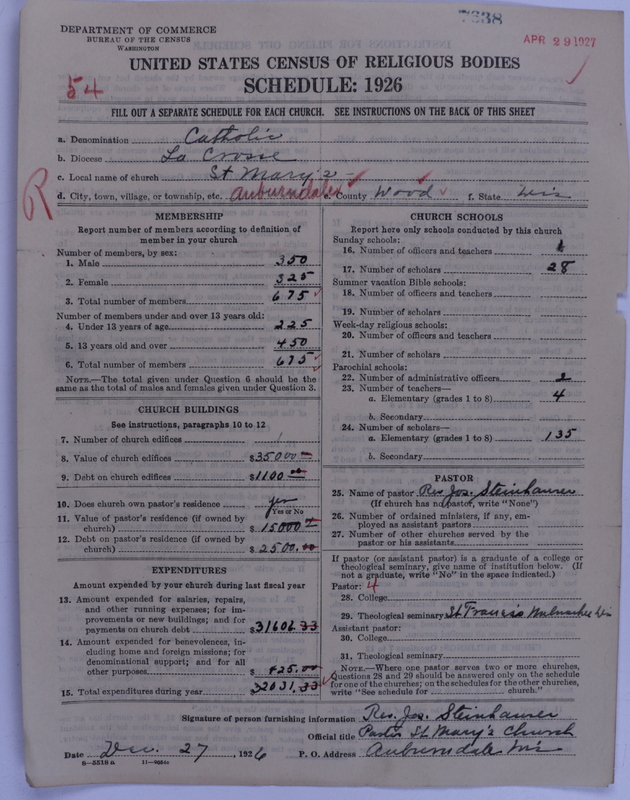 7638
APR 29 1927
DEPARTMENT OF COMMERCE
BUREAU OF THE CENSUS
WASHINGTON
UNITED STATES CENSUS OF RELIGIOUS BODIES
SCHEDULE: 1926
54
FILL OUT A SEPARATE SCHEDULE FOR EACH CHURCH. SEE INSTRUCTIONS ON THE BACK OF THIS SHEET
a. Denomination Catholic
b. Diocese La Crosse
c. Local name of church St Mary's
R
d. City, town, village, or township, etc. Auburndale e. County Wood f. State Wis
MEMBERSHIP
Report number of members according to definition of member in your church
Number of members, by sex:
1. Male 350
2. Female 325
3. Total number of members 675
Number of members under and over 13 years old:
4. Under 13 years of age 225
5. 13 years old and over 450
6. Total number of members 675
NOTE.—The total given under Question 6 should be the same as the total of males and females given under Question 3.
CHURCH BUILDINGS
See instructions, paragraphs 10 to 12
7. Number of church edifices 1
8. Value of church edifices $35000
9. Debt on church edifices $1100
10. Does church own pastor's residence yes
Yes or No
11. Value of pastor's residence (if owned by church) $15000
12. Debt on pastor's residence (if owned by church) $2500.00
EXPENDITURES
Amount expended by your church during last fiscal year
13. Amount expended for salaries, repairs, and other running expenses; for improvements or new buildings; and for payments on church debt $31606 33
14. Amount expended for benevolences, including home and foreign missions; for denominational support; and for all other purposes $425.00
15. Total expenditures during year 32031.33
CHURCH SCHOOLS
Report here only schools conducted by this church
Sunday schools:
16. Number of officers and teachers
17. Number of scholars 28
Summer vacation Bible schools:
18. Number of officers and teachers
19. Number of scholars
Week-day religious schools:
20. Number of officers and teachers
21. Number of scholars
Parochial schools:
22. Number of administrative officers 2
23. Number of teachers—
a. Elementary (grades 1 to 8) 4
b. Secondary
24. Number of scholars—
a. Elementary (grades 1 to 8) 135
b. Secondary
PASTOR
25. Name of pastor Rev Jos. Steinhauser
(If church has no pastor, write "None")
26. Number of ordained ministers, if any, employed as assistant pastors
27. Number of other churches served by the pastor or his assistants
If pastor (or assistant pastor) is a graduate of a college or theological seminary, give name of institution below. (If not a graduate, write "No" in the space indicated.)
Pastor: 4
28. College
29. Theological seminary St Francis Milwaukee Wis
Assistant pastor:
30. College
31. Theological seminary
NOTE.—Where one pastor serves two or more churches, Questions 28 and 29 should be answered only on the schedule for one of the churches; on the schedules for the other churches, write "See schedule for church."
Signature of person furnishing information Rev. Jos. Steinhauser
Official title Pastor St Mary's Church
Date Dec. 27, 1926 P. O. Address Auburndale Wis
8—5518a 11—9051a